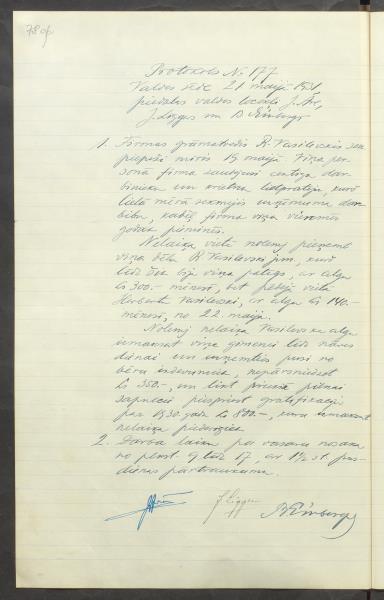 Protokols No 177
Valdes sēdē 21 maijā 1931,
piedalās valdes locekļi J.
J. Liģers un B Einbergs
1. Firmas grāmatvedis R. Vasiļevskis sen.
pēkšņi miris 19 maijā. Viņa per-
sonā firma zaudējusi centīgu dar-
binieku un krietnu līdzpratēju, kurš
lielā mērā sekmējis uzņēmuma dar-
bību, kādēļ firma viņu vienmēr
godam pieminēs.
Nelaiķa vietā nolemj pieņemt
viņa dēlu R Vasiļevski jun., kurš
līdz šim bija viņa palīgs, ar algu
Ls 300.- mēnesī, bet pēdējā vietā
Herbertu Vasiļevski, ar algu Ls 140.-
mēnesī, no 22. maija.
Nolemj nelaiķa Vasiļevska algu
izmaksāt viņa ģimenei līdz nāves
dienai un uzņemties pusi no
bēru izdevumiem, nepārsniedzot
Ls 350.-, un lūgt pilnai
sapulcei piespriest gratifikāciju
par 1930. gadu Ls 800.-, kuru izmaksāt
nelaiķa piederīgiem.
2. Darba laiku pa vasaru nosaka
no plkst. 9 līdz 17, ar 1½ st. pus-
dienas pārtraukumu.
J Liģers
B Einbergs